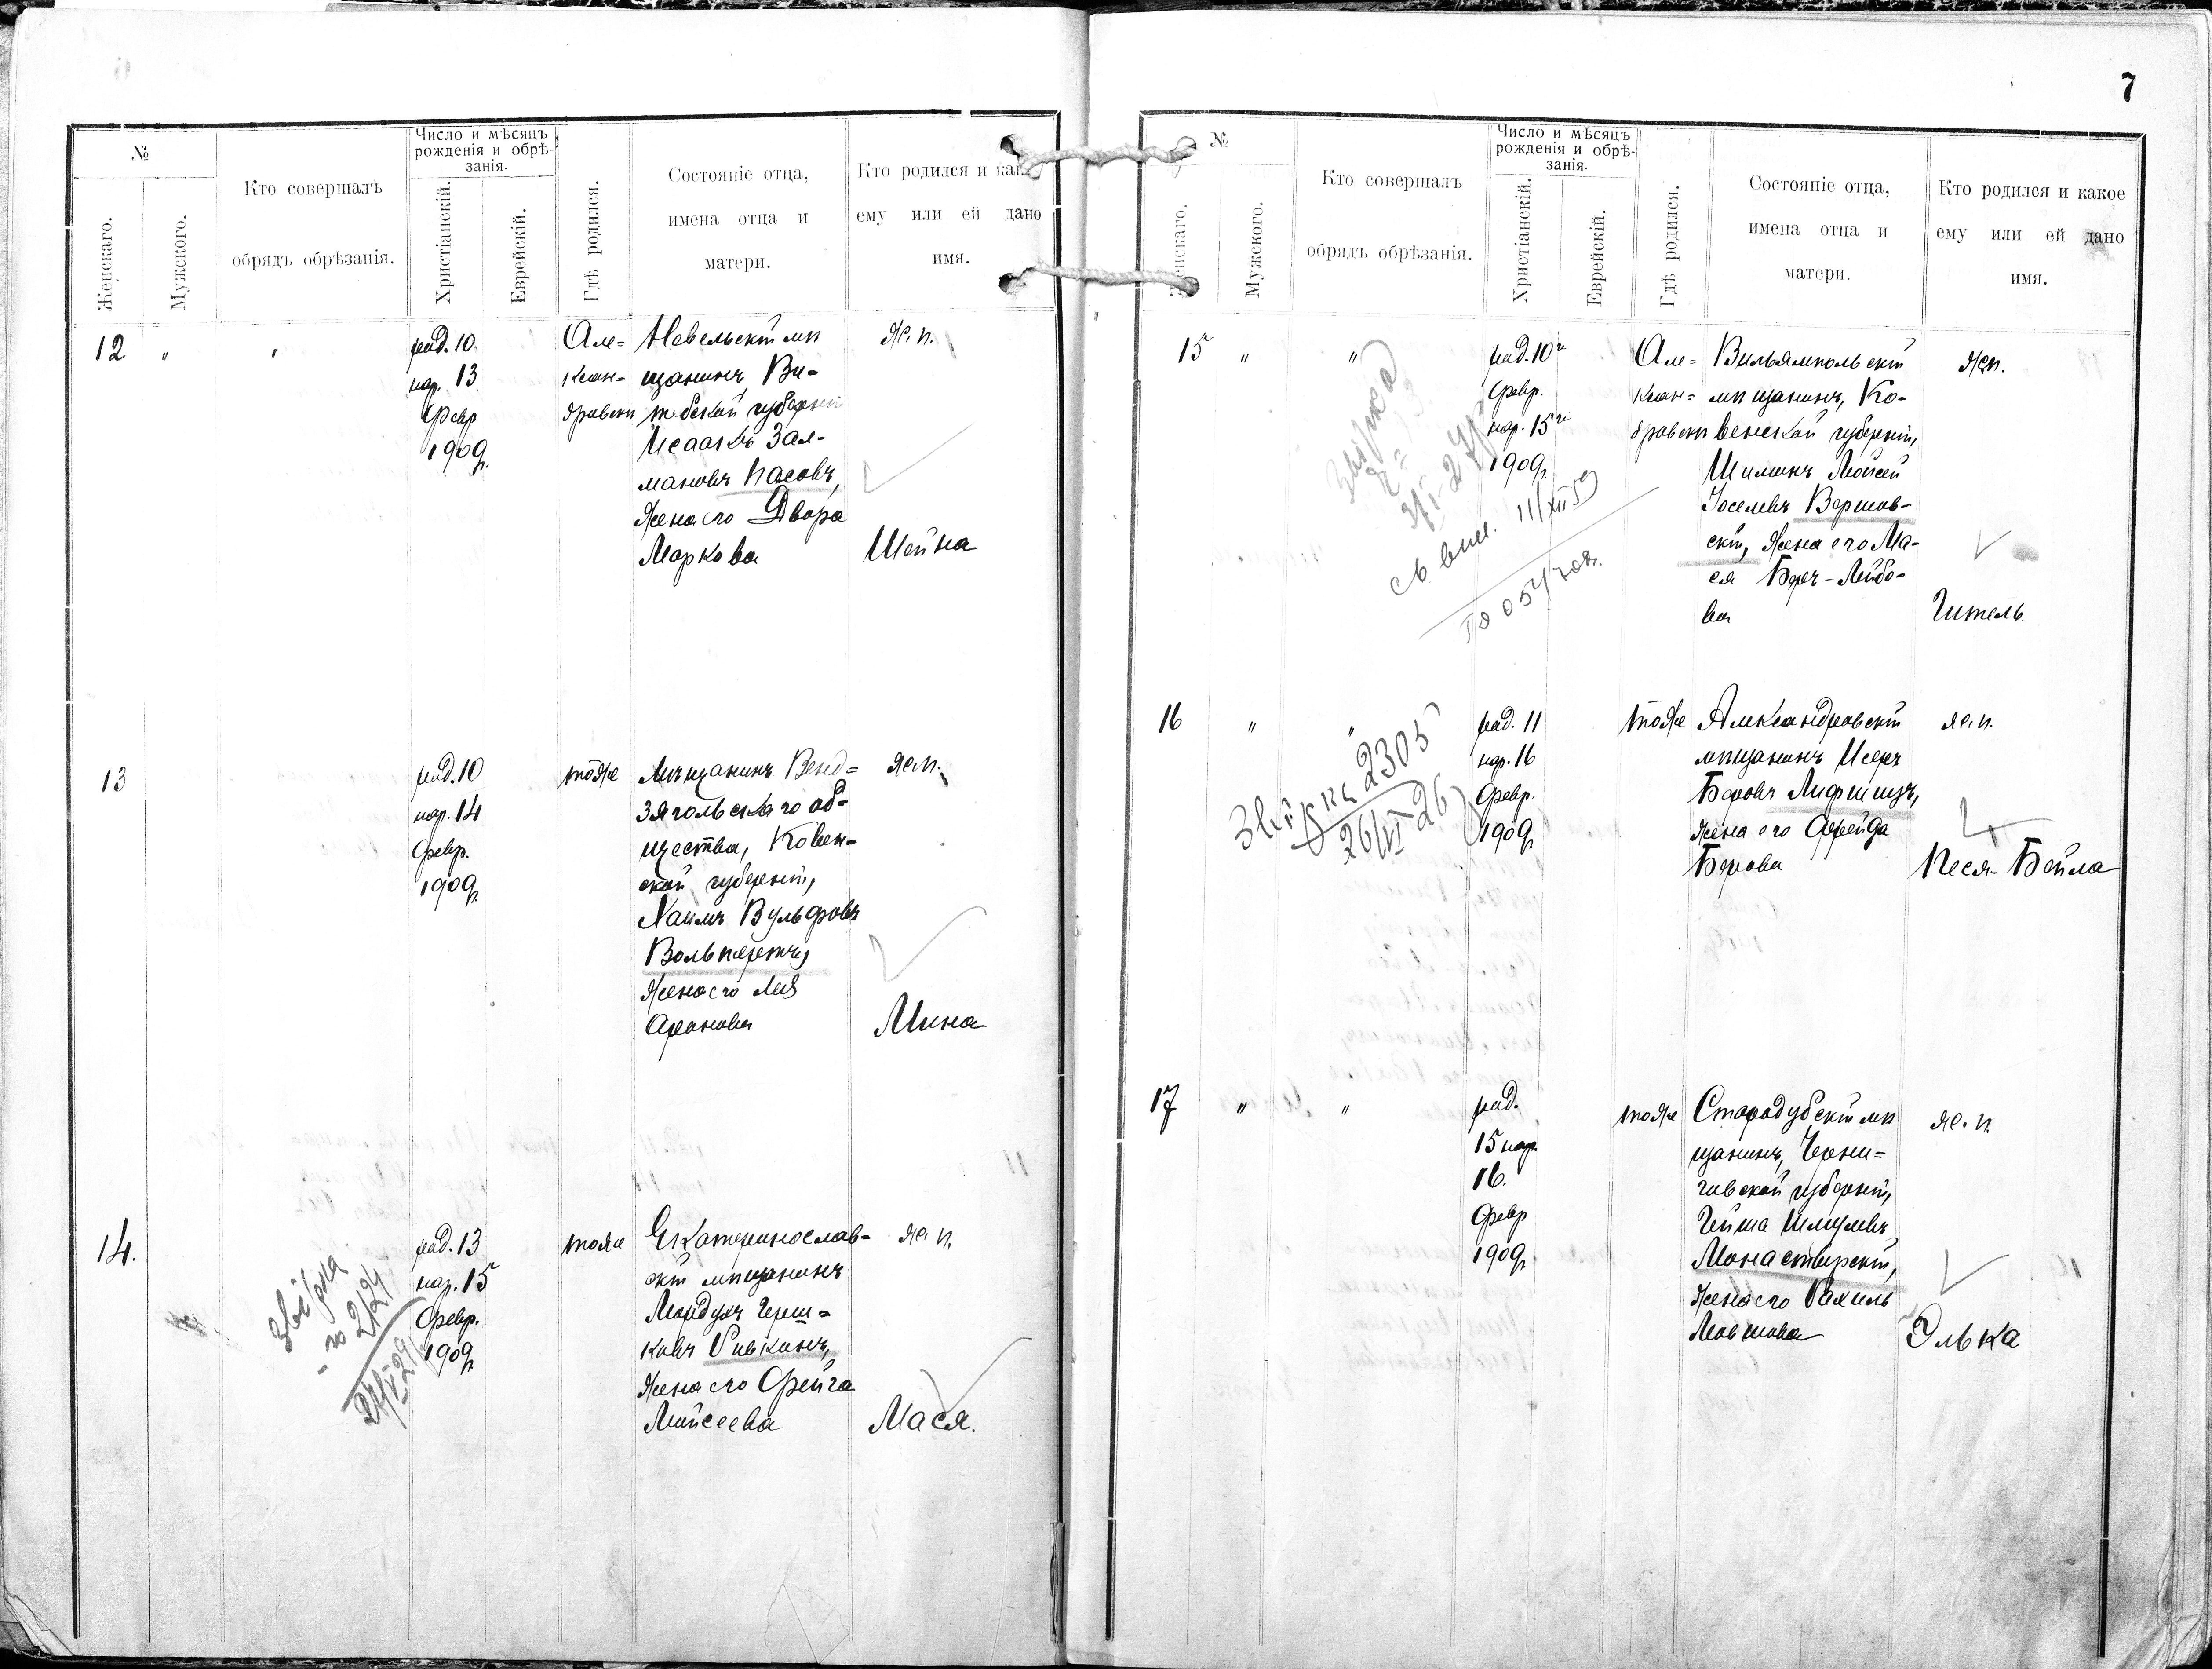 №
Женскаго.
Мужского.
Кто совершалъ
обрядъ обрѣзанія.
Число и мѣсяцъ
рожденія и обрѣ-
занія.
Христіанскій.
Еврейскій.
Гдѣ родился.
Состояніе отца,
имена отца и
матери.
Кто родился и как
ему или ей дано
имя.
12 " "
род. 10
нар. 13
Февр
1909 г.
Але=
ксан=
дровск
Невельскій мѣ
щанинъ Ви-
тебской губерніи
Исаакъ Зал-
мановъ Пасовъ,
жена его Двора
Маркова
ж. п.
Шейна
13
род. 10
нар. 14
Февр.
1909 г.
тоже
Мѣщанинъ Венд=
зягольскаго об=
щества, Ковен=
ской губерніи,
Хаимъ Вульфовъ
Вольперътъ,
жена его Лея
Аронова
ж. п.
Мина
14.
род. 13
нар. 15
Февр.
1909 г.
тоже
Екатеринослав=
скій мѣщанинъ
Мордухъ Герш=
ковъ Ривкинъ,
жена его Фрейга
Мойсеева
ж. п.
Мася.
звірка
2124
7
№
Женскаго.
Мужского.
Кто совершалъ
обрядъ обрѣзанія.
Число и мѣсяцъ
рожденія и обрѣ-
занія.
Христіанскій.
Еврейскій.
Гдѣ родился.
Состояніе отца,
имена отца и
матери.
Кто родился и какое
ему или ей дано
имя.
15 " "
род. 10го
Февр.
нар. 15го
1909 г.
Але=
ксан=
дровск
Вильямпольскій
мѣщанинъ, Ко-
венской губерніи,
Шимонъ Мойсей
Іоселевъ Варшав-
скій, жена его Ма-
ся Беръ-Лейбо-
ва
ж. п.
Гитель.
звірка
16 " "
род. 11
нар. 16
Февр.
1909 г.
тоже
Александровскій
мѣщанинъ Исеръ
Беровъ Лифшицъ,
жена его Фрейда
Берова
ж. п.
Песя-Бейла
Звірка 2305
26/VI 26
17 " "
род.
15 нар.
16.
Февр
1909 г.
тоже
Стародубскій мѣ
щанинъ, Черни=
говской губерніи,
Гейша Шмулевъ
Монастырскій,
жена его Рахиль
Мовшова
ж. п.
Элька